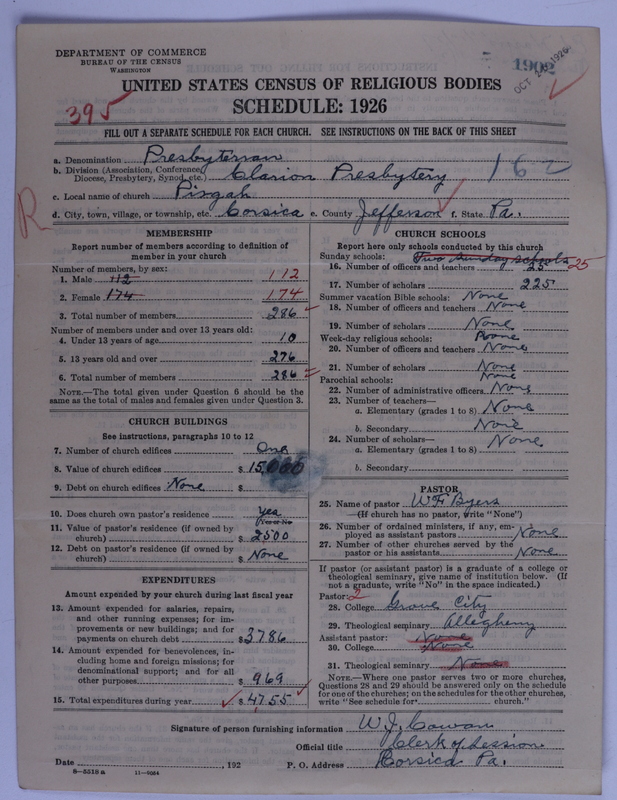 DEPARTMENT OF COMMERCE
BUREAU OF THE CENSUS
WASHINGTON
1902
OCT 2 1926
UNITED STATES CENSUS OF RELIGIOUS BODIES
395
SCHEDULE: 1926
FILL OUT A SEPARATE SCHEDULE FOR EACH CHURCH. SEE INSTRUCTIONS ON THE BACK OF THIS SHEET
a. Denomination Presbyterian
b. Division (Association, Conference, Diocese, Presbytery, Synod, etc.) Clarion Presbytery
162
c. Local name of church Pisgah
R
d. City, town, village, or township, etc. Corsica e. County Jefferson f. State Pa.
MEMBERSHIP
Report number of members according to definition of
member in your church
Number of members, by sex:
1. Male 112 112
2. Female 174 174
3. Total number of members 286
Number of members under and over 13 years old:
4. Under 13 years of age 10
5. 13 years old and over 276
6. Total number of members 286
NOTE.—The total given under Question 6 should be
same as the total of males and females given under Question 3.
CHURCH BUILDINGS
See instructions, paragraphs 10 to 12
7. Number of church edifices One
8. Value of church edifices $ 15,000
9. Debt on church edifices None $
10. Does church own pastor's residence? Yes
(Yes or No)
11. Value of pastor's residence (if owned by
church) $ 2500
12. Debt on pastor's residence (if owned by
church) $ None
EXPENDITURES
Amount expended by your church during last fiscal year
13. Amount expended for salaries, repairs,
and other running expenses; for im-
provements or new buildings; and for
payments on church debt $ 3786
14. Amount expended for benevolences, in-
cluding home and foreign missions; for
denominational support; and for all
other purposes $ 969
15. Total expenditures during year $ 4755
CHURCH SCHOOLS
Report here only schools conducted by this church
Sunday schools: Two Sunday schools
16. Number of officers and teachers 25 25
17. Number of scholars 225
Summer vacation Bible schools: None
18. Number of officers and teachers None
19. Number of scholars None
Week-day religious schools: None
20. Number of officers and teachers None
21. Number of scholars None
Parochial schools: None
22. Number of administrative officers None
23. Number of teachers—
a. Elementary (grades 1 to 8) None
b. Secondary None
24. Number of scholars— None
a. Elementary (grades 1 to 8)
b. Secondary
PASTOR
25. Name of pastor W F Byers
(If church has no pastor, write "None")
26. Number of ordained ministers, if any, em-
ployed as assistant pastors None
27. Number of other churches served by the
pastor or his assistants None
If pastor (or assistant pastor) is a graduate of a college or
theological seminary, give name of institution below. (If
not a graduate, write "No" in the space indicated.)
Pastor: 2
28. College Grove City
29. Theological seminary Allegheny
Assistant pastor: None
30. College None
31. Theological seminary None
NOTE.—Where one pastor serves two or more churches,
Questions 28 and 29 should be answered only on the schedule
for one of the churches; on the schedules for the other churches,
write "See schedule for church."
Signature of person furnishing information W. J. Cowan
Official title Clerk of Session
Date , 192 P. O. Address Corsica Pa.
8—5518 a 11—9054